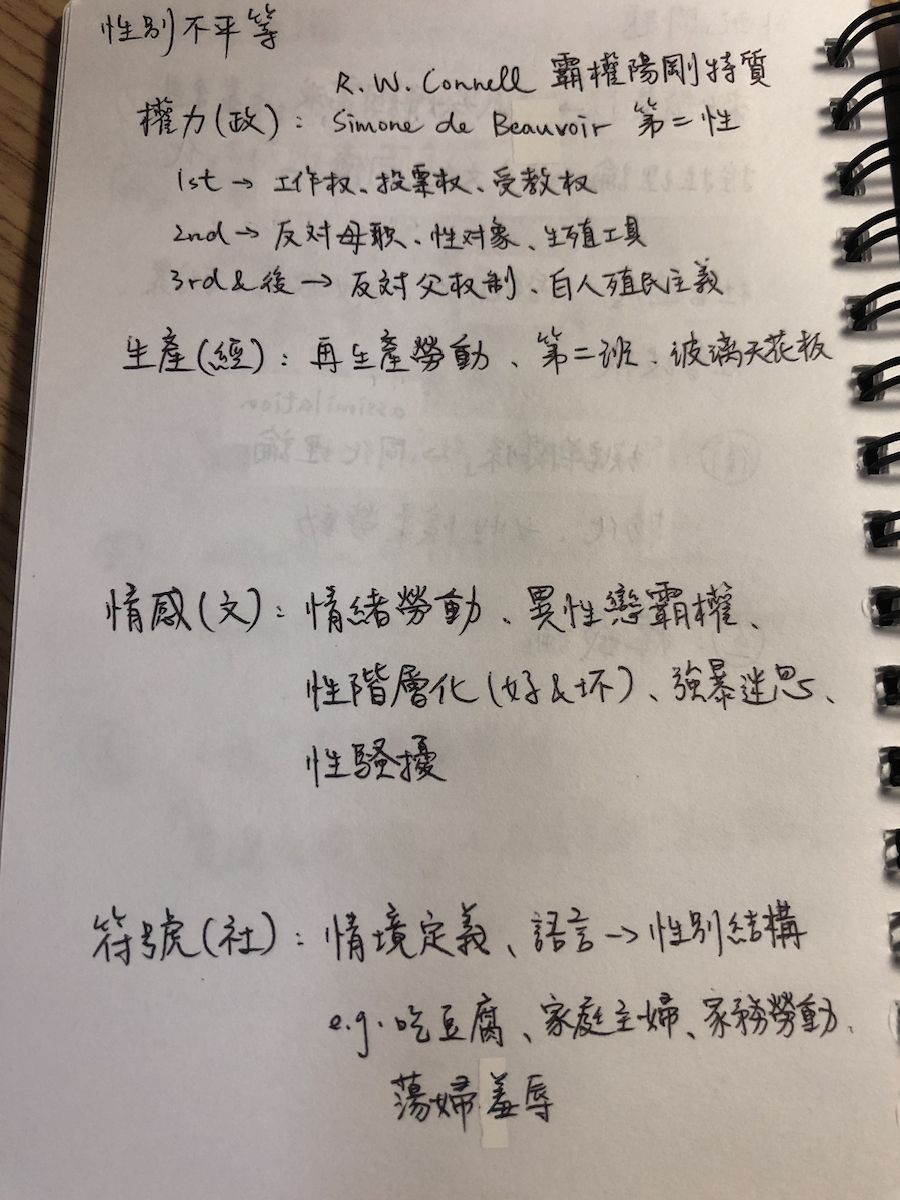 性别不平等
R.W.Connell 霸權陽剛特質
權力(政)：Simone de Beauvoir 第二性
1st → 工作权、投票权、受教权
2nd → 反对母职、性对象、生殖工具
3rd & 後 → 反対父权制、白人殖民主義
生產(經)：再生產勞動、第二班、玻璃天花板
情感(文)：情緒勞動、異性戀霸權、
性階層化(好&坏)、強暴迷思、
性騷擾
符號(社)：情境定義、語言→性别結構
e.g. 吃豆腐、家庭主婦、家務勞動、
蕩婦羞辱
assimilation
同化理論